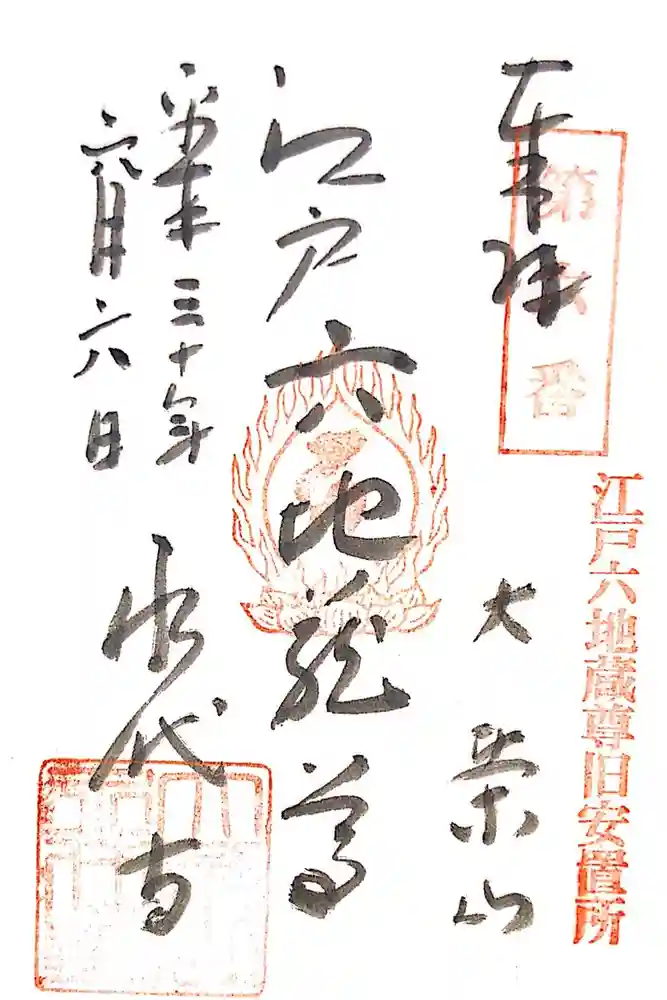 奉拝
第六番
江戸六地蔵尊旧安置所
大栄山
江戸六地蔵尊
平成三十年
六月六日
永代寺